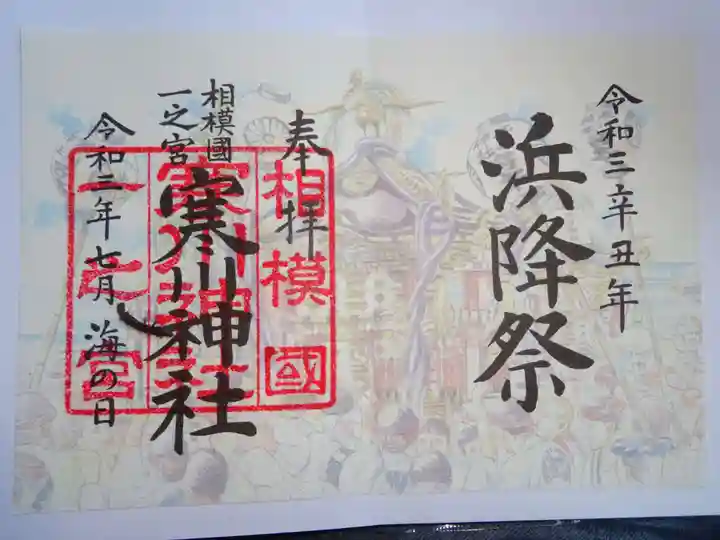 令和三辛丑年
浜降祭
奉拝
相模國
一之宮
寒川神社
令和二年七月海の日
相模國
寒川神社
一之宮